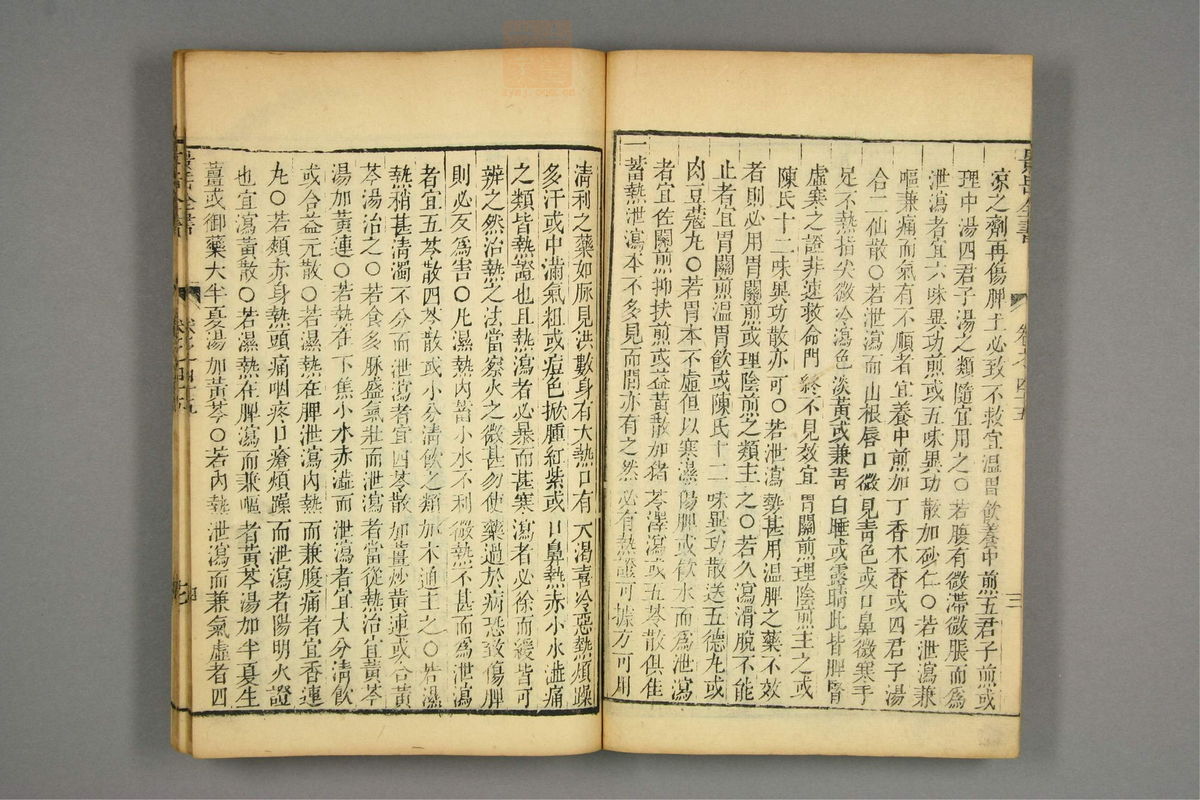 凉之劑再傷脾土必致不救宜温胃飲養中煎五君子煎或
理中湯四君子湯之類隨宜用之〇若腹有微滯微脹而爲
泄瀉者宜六味異功煎或五味異功散加砂仁〇若泄瀉兼
嘔兼痛而氣有不順者宜養中煎加丁香木香或四君子湯
合二仙散〇若泄瀉而山根唇口微見青色或口鼻微寒手
足不熱指尖微冷瀉色淡黃或兼青白睡或露睛此皆脾腎
虛寒之證非速救命門終不見效宜胃關煎理陰煎主之或
陳氏十二味異功散亦可〇若泄瀉勢甚用温脾之藥不效
者則必用胃關煎或理陰煎之類主之〇若久瀉滑脫不能
止者宜胃關煎温胃飲或陳氏十二味異功散送五德丸或
肉豆蔻丸〇若胃本不虛但以寒濕傷脾或飲水而爲泄瀉
者宜佐關煎抑扶煎或益黃散加猪苓澤瀉或五苓散俱佳
一蓄熱泄瀉本不多見而間亦有之然必有熱證可據方可用
景岳全書 卷之四十五 三
清利之藥如脉見洪數身有大熱口有大渴喜冷惡熱煩躁
多汗或中滿氣粗或痘色掀腫紅紫或口鼻熱赤小水澁痛
之類皆熱證也且熱瀉者必暴而甚寒瀉者必徐而緩皆可
辨之然治熱之法當察火之微甚勿使藥過於病恐致傷脾
則必反爲害〇凡濕熱內蓄小水不利微熱不甚而爲泄瀉
者宜五苓散四苓散或小分清飲之類加木通主之〇若濕
熱稍甚清濁不分而泄瀉者宜四苓散加薑炒黃連或合黃
芩湯治之〇若食多脉盛氣壯而泄瀉者當從熱治宜黃芩
湯加黃連〇若熱在下焦小水赤澁而泄瀉者宜大分清飲
或合益元散〇若濕熱在脾泄瀉內熱而兼腹痛者宜香連
丸〇若頰赤身熱頭痛咽疼口瘡煩躁而泄瀉者陽明火證
也宜瀉黃散〇若濕熱在脾瀉而兼嘔者黃芩湯加半夏生
薑或御藥大半夏湯加黃芩〇若內熱泄瀉而兼氣虛者四